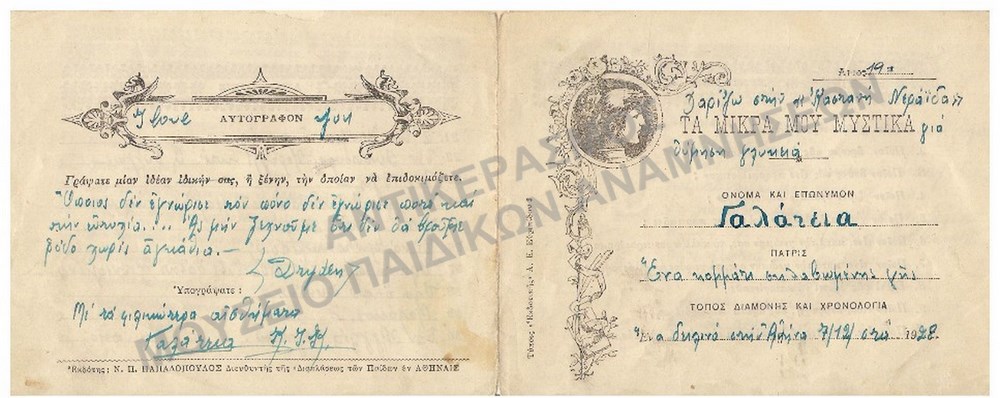 I love you
ΑΥΤΟΓΡΑΦΟΝ
Γράψατε μίαν ἰδέαν ἰδικήν σας, ἢ ξένην, τὴν ὁποίαν νὰ ἐπιδοκιμάζετε.
Ὅποιος δὲν ἐγνώρισε τὸν πόνο δὲν ἐγνώρισε ποτὲ καὶ
τὴν εὐτυχία.... Ἂς μὴν ξεχνοῦμε ὅτι δὲν θὰ βροῦμε
ρόδο χωρὶς ἀγκάθια.—
(Dryden)
Ὑπογράψατε :
Μὲ τὰ φιλικώτερα αἰσθήματα
Γαλάτεια
Ἐκδότης: Ν. Π. ΠΑΠΑΔΟΠΟΥΛΟΣ Διευθυντὴς τῆς «Διαπλάσεως τῶν Παίδων ἐν ΑΘΗΝΑΙΣ
Τύποις «Ἐκδοτικῆς» Α. Ε.
Ἀριθ. 19
Χαρίζω στὴν "Καστανὴ Νεράϊδα"
ΤΑ ΜΙΚΡΑ ΜΟΥ ΜΥΣΤΙΚΑ γιὰ
θύμηση γλυκειά
ΟΝΟΜΑ ΚΑΙ ΕΠΩΝΥΜΟΝ
Γαλάτεια
ΠΑΤΡΙΣ
Ἕνα κομμάτι σκλαβωμένης γῆς
ΤΟΠΟΣ ΔΙΑΜΟΝΗΣ ΚΑΙ ΧΡΟΝΟΛΟΓΙΑ
Ἕνα δειλινὸ στὴν Ἀθήνα 7/12 στὰ 1928
ΑΝΤΙΚΕΡΑΣΤΗΣ
ΜΟΥΣΕΙΟ ΠΑΙΔΙΚΩΝ ΑΝΑΜΝΗΣΕΩΝ